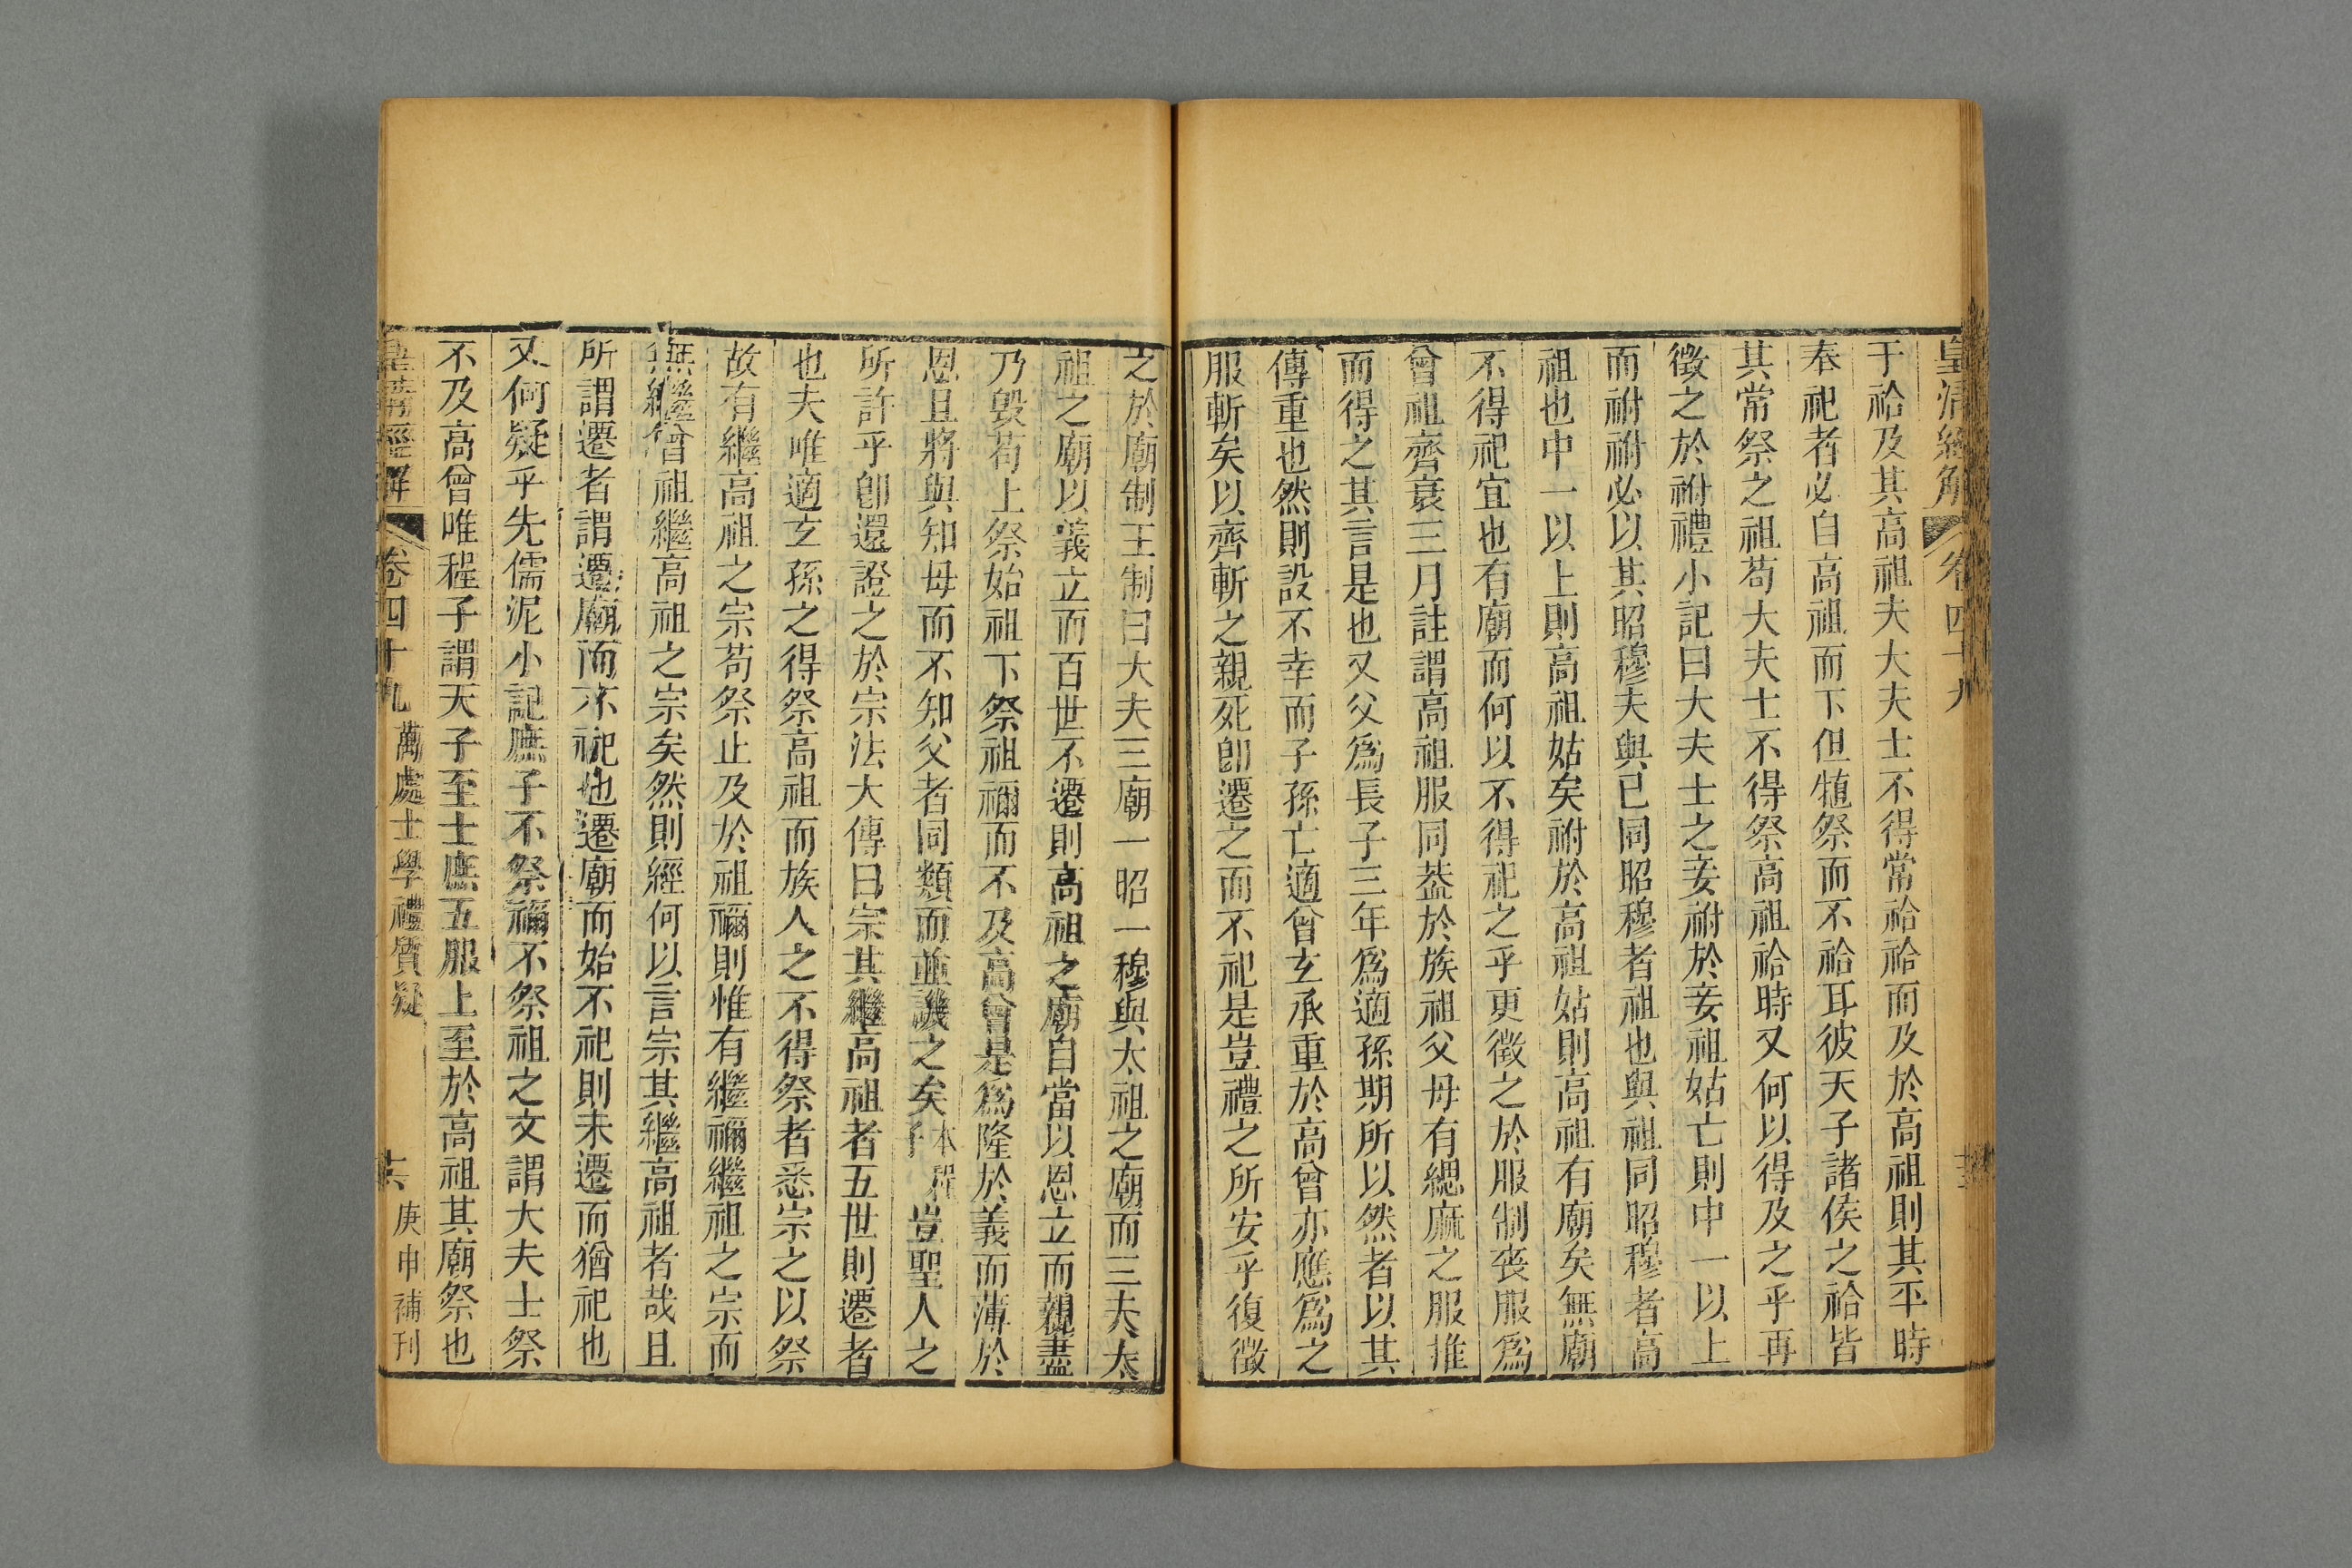 皇清經解 卷四十九
于祫及其高祖夫大夫士不得常祫祫而及於高祖則其平時
奉祀者必自高祖而下但犆祭而不祫耳彼天子諸侯之祫皆
其常祭之祖苟大夫士不得祭高祖祫時又何以得及之乎再
徵之於祔禮小記曰大夫士之妾祔於妾祖姑亡則中一以上
而祔祔必以其昭穆夫與已同昭穆者祖也與祖同昭穆者高
祖也中一以上則高祖姑矣祔於高祖姑則高祖有廟矣無廟
不得祀宜也有廟而何以不得祀之乎更徵之於服制喪服爲
曾祖齊衰三月註謂高祖服同葢於族祖父母有緦麻之服推
而得之其言是也又父爲長子三年爲適孫期所以然者以其
傳重也然則設不幸而子孫亡適曾玄承重於高曾亦應爲之
服斬矣以齊斬之親死卽遷之而不祀是豈禮之所安乎復徵
之於廟制王制曰大夫三廟一昭一穆與太祖之廟而三夫太
祖之廟以義立而百世不遷則高祖之廟自當以恩立而親盡
乃毀苟上祭始祖下祭祖禰而不及高曾是爲隆於義而薄於
恩且將與知母而不知父者同類而並譏之矣本程子豈聖人之
所許乎卽還證之於宗法大傳曰宗其繼高祖者五世則遷者
也夫唯適玄孫之得祭高祖而族人之不得祭者悉宗之以祭
故有繼高祖之宗苟祭止及於祖禰則惟有繼禰繼祖之宗而
無繼曾祖繼高祖之宗矣然則經何以言宗其繼高祖者哉且
所謂遷者謂遷廟而不祀也遷廟而始不祀則未遷而猶祀也
又何疑乎先儒泥小記庶子不祭禰不祭祖之文謂大夫士祭
不及高曾唯程子謂天子至士庶五服上至於高祖其廟祭也
皇清經解 卷四十九 萬處士學禮質疑 十六 庚申補刊